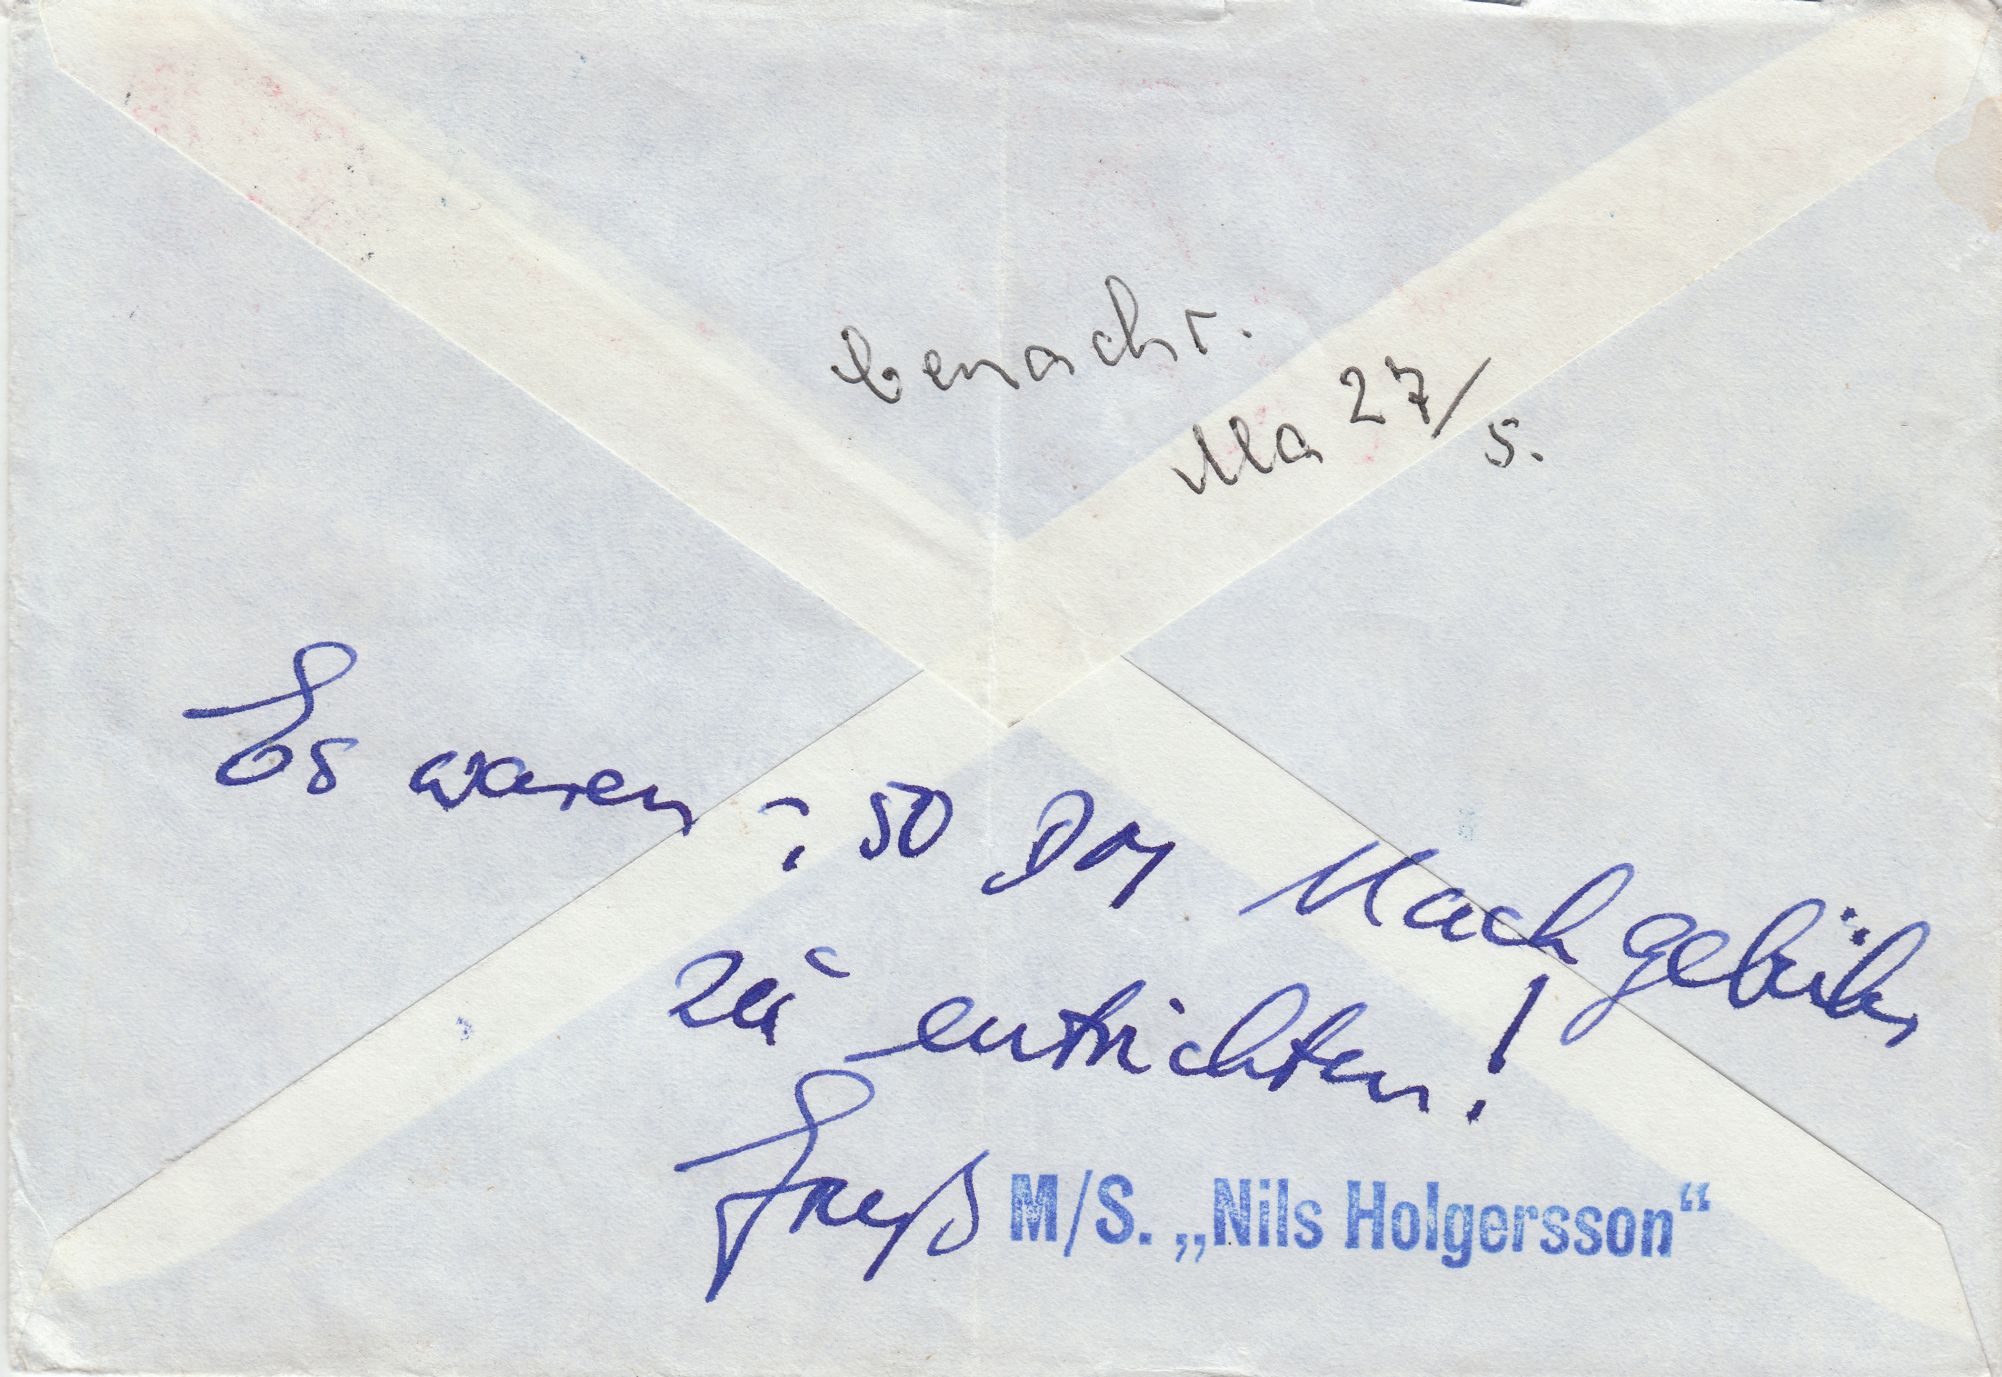 benachr.
Ma 27/5.
Es waren -,50 DM Nachgebühr
zu entrichten!
Gruß M/S. „Nils Holgersson“